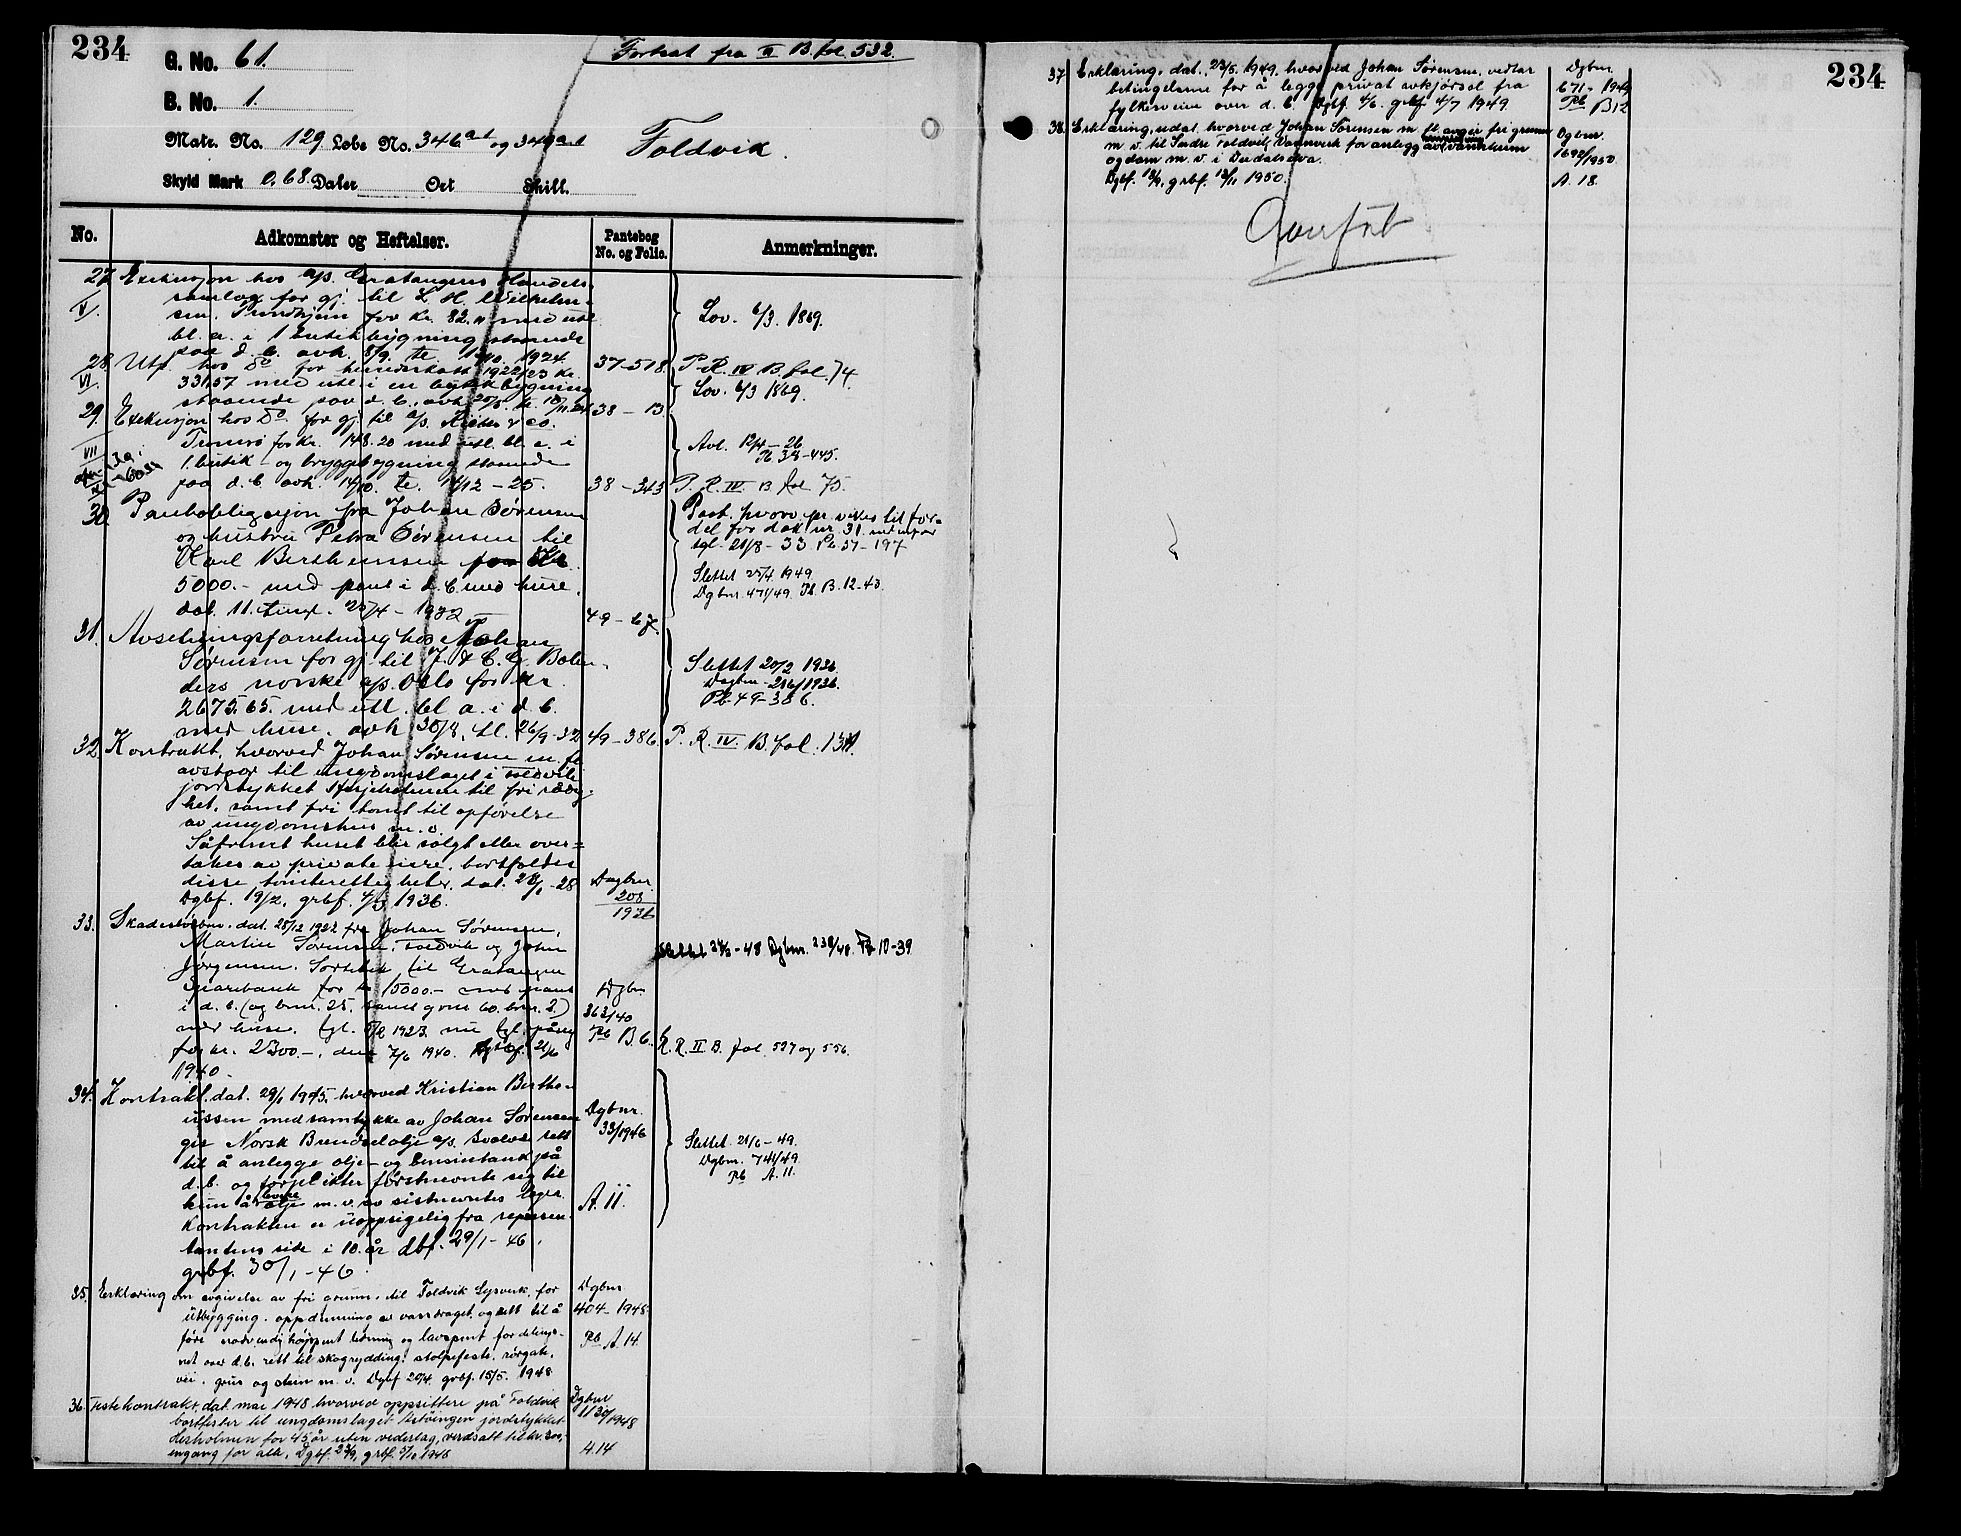 234
G. No. 61.
Fortsat fra II B. fol. 532.
B. No. 1.
Matr. No. 129 Løbe No. 346 a1 og 349 a1
Foldvik.
Skyld Mark 0,68 Daler Ort Skill.
No. Adkomster og Heftelser. Pantebog No. og Folio. Anmerkninger.
27. Exekusjon hos a/s. Gratangens Handels-
samlag for gj. til L. H. Wilhelm-
sen, Trondhjem for kr. 82. med utl.
bl. a. i 1 butikbygning staaende
paa d. b. avh. 8/9. te. 1924.
37-518
Lov. 6/3. 1869.
28. Utp. hos Do for herredsskatt 1922/23 kr.
331.57 med utl. i en butikbygning
staaende paa d. b., avh.
38 - 13
P. R. IV B. fol. 74.
Lov. 6/3 1869.
29. Exekusjon hos Do. for gj. til a/s.
Tromsø for kr. 148.20 med utl. bl. a. i
1 butik- og bryggebygning staaende
paa d. b. avh. 14/10. te. 14/12 - 25.
38 - 343
Avl. 12/4 - 26
Pb. 38-445.
P. R. IV B fol 75.
30. Panteobligasjon fra Johan Sørensen
og hustru Petra Sørensen til
Karl Berthensen for kr.
5000.- med pant i d. b. med huse,
dat. 11. tingl. 25/4 - 1932
49 - 67.
Post. hvorv. pr. vikes til for-
del for dok nr. 31. nedenfor
tgl. 21/8 - 33 Pb. 51 - 197
Slettet 25/4 1949
Dgbnr. 471/49 Pb. B. 12-43.
31. Avsetningsforretning hos Johan
Sørensen for gj. til J. & C. G. Bolin-
ders norske a/s. Oslo for kr.
2675.65. med utl. bl a. i d. b.
med huse. avh. 30/8, tl. 26/9-32
49-386.
Slettet 20/2 1936.
Dagbnr. 216/1936.
Pb. 49-386.
P. R. IV. B. fol. 134.
32. Kontrakt, hvorved Johan Sørensen m. fl.
avstaar til ungdomslaget i Foldvik
jordstykket Hesjeholmen til fri raadig-
het, samt fri tomt til opførelse
av ungdomshus m. v.
Såfremt huset blir solgt eller over-
takes av private eiere, bortfalder
disse tomterettigheter, dat. 28/1-28
Dgbf. 19/2, grbf. 4/3 1936.
Dagbnr.
208
1936
33. Skadesløsbrev, dat. 28/12 1922 fra Johan Sørensen,
Martin Sørensen, Foldvik og John
Jørgensen, til Gratangen
Sparebank for kr 15000.- med pant
i d. b. (og bnr. 25, samt gnr. 60. bnr. 2)
med huse, tgl. 1923. nu tgl. påny
for kr. 2300.-, den 7/6 1940. Dgbf. 21/6
1940.
Dgbnr.
363/40
Pb B. 6.
Slettet - 48 Dgbnr. 238/48. Pb 10-39
P. R. II B. fol. 527 og 556.
34. Kontrakt, dat. 29/1 1945, hvorved Kristian Berthe-
ussen med samtykke av Johan Sørensen
gir Norsk Brendselolje a/s. Svolvær rett
til å anlegge olje- og bensintank på
d. b. og forplikter førstnevnte sig til
kun å bruke olje m. v. av sistnevntes lager.
Kontrakten er uoppsigelig fra represen-
tantens side i 10 år dbf. 29/1 - 46,
grbf. 30/1 - 46.
Dgbnr.
33/1946
A. 11.
Slettet 21/6 - 49.
Dgbnr. 741/49
Pb A. 11.
35. Erklæring om avgivelse av fri grunn til Foldvik Lysverk, for
utbygging, oppdemning av vassdraget, og rett til å
føre nødvendig høyspent ledning og lavspent fordelings-
net over d. b. rett til skogrydding, stolpefeste, rørgate,
vei, grus og stein m. v. Dgbf. 20/4. grbf. 15/5. 1948
Dgbnr.
404 - 1948
Pb A. 14.
36. Festekontrakt, dat. mai 1948 hvorved oppsittere på Foldvik
bortfester til ungdomslaget jordstykket
Hesholmen for 45 år uten vederlag, verdsatt til kr. 300,-
engang for alle, Dgbf. 23/9, grbf. 5/10 1948
Dgbnr
1130/1948
A 14
234
37. Erklæring, dat. 23/5. 1949. hvorved Johan Sørensen, vedtar
betingelsene for å legge privat avkjørsel fra
fylkesveien over d. b. Dgbf. 4/6. grbf. 4/7 1949
Dgbnr.
671 - 1949
Pb B 12
38. Erklæring, udat. hvorved Johan Sørensen m. fl. avgir fri grunn
m. v. til Søndre Foldvik Vannverk for anlegg av vannkum
og dam m. v. i Dudalselva.
Dgbf. 18/9, grbf. 13/11 1950.
Dgbnr.
1692/1950
A. 18.
Overført